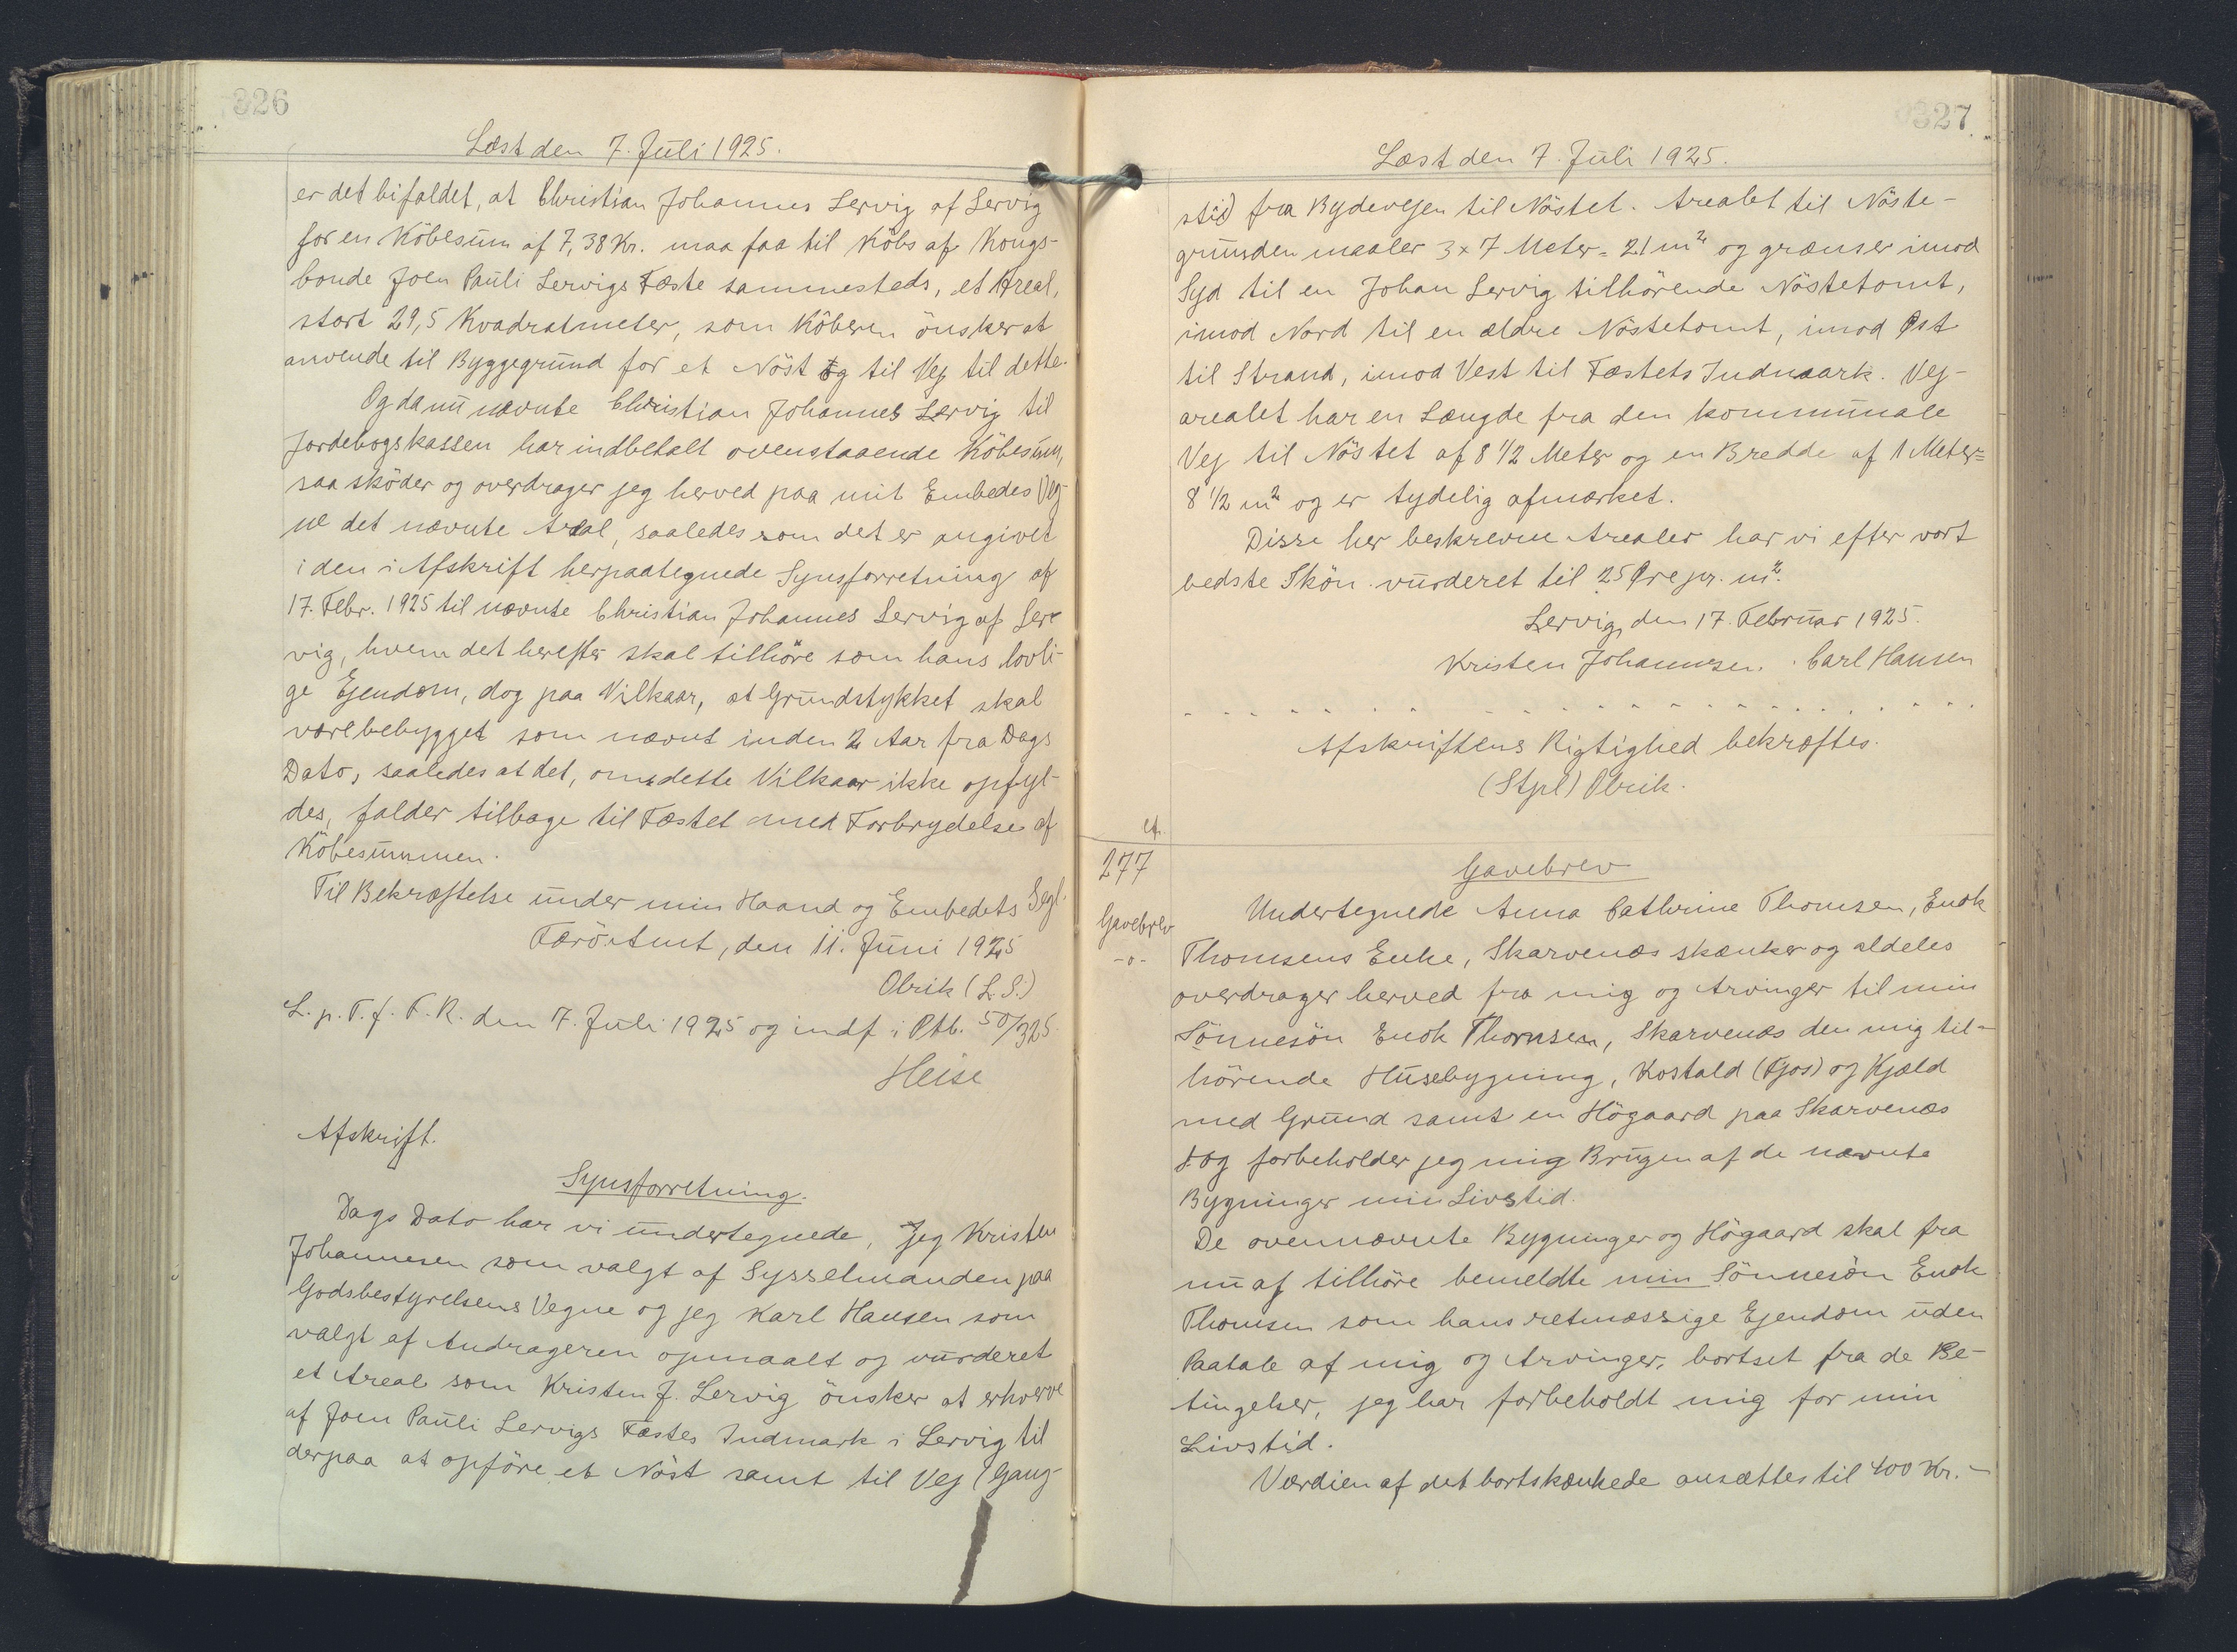 326
Læst den 7. Juli 1925.
er det bifaldet, at Christian Johannes Lervig af Lervig
for en Köbesum af 7,38 Kr. maa faa til Köbs af Kongs-
bonde Joen Pauli Lervigs Fæste sammesteds, et Areal,
stort 29,5 Kvadratmeter, som Köberen önsker at
anvende til Byggegrund for et Nöst og til Vej til dette.
Og da nu nævnte Christian Johannes Lervig til
Jordebogskassen har indbetalt ovenstaaende Köbesum,
saa sköder og overdrager jeg herved paa mit Embedes Veg-
ne det nævnte Areal, saaledes som det er angivet
i den i Afskrift herpaategnede Synsforretning af
17. Febr. 1925 til nævnte Christian Johannes Lervig af Ler-
vig, hvem det herefter skal tilhöre som hans lovli-
ge Ejendom, dog paa Vilkaar, at Grundstykket skal
være bebygget som nævnt inden 2 Aar fra Dags
Dato, saaledes at det, om dette Vilkaar ikke opfyl-
des, falder tilbage til Fæstet med Forbrydelse af
Köbesummen.
Til Bekræftelse under min Haand og Embedets Segl.
Færö Amt, den 11. Juni 1925
Olrik (L.S.)
L. p. T. f. F. R. den 7. Juli 1925 og indf. i Ptb. 50/325.
Heise
Afskrift.
Synsforretning.
Dags Dato har vi undertegnede, Jeg Kristen
Johannesen som valgt af Sysselmanden paa
Godsbestyrelsens Vegne og jeg Karl Hansen som
valgt af Andrageren opmaalt og vurderet
et Areal som Kristen J. Lervig önsker at erhverve
af Joen Pauli Lervigs Fæstes Indmark i Lervig til
derpaa at opföre et Nöst samt til Vej (Gang-
327.
Læst den 7. Juli 1925.
stid) fra Bydevejen til Nöstet. Arealet til Nöste-
grunden maaler 3 x 7 Meter = 21 m² og grænser imod
Syd til en Johan Lervig tilhörende Nöstetomt,
imod Nord til en ældre Nöstetomt, imod Øst
til Strand, imod Vest til Fæstets Indmark. Vej-
arealet har en Længde fra den kommunale
Vej til Nöstet af 8 1/2 Meter og en Bredde af 1 Meter =
8 1/2 m² og er tydelig afmærket.
Disse her beskrevne Arealer har vi efter vort
bedste Skön vurderet til 25 Øre pr. m².
Lervig, den 17. Februar 1925.
Kristen Johannesen. Carl Hansen
Afskriftens Rigtighed bekræftes.
(Stpl) Olrik.
277
Gavebrev
-o-
Gavebrev
Undertegnede Anna Cathrine Thomsen, Enok
Thomsens Enke, Skarvenæs skænker og aldeles
overdrager herved fra mig og Arvinger til min
Sönnesön Enok Thomsen, Skarvenæs den mig til-
hörende Husebygning, Kostald (Fjos) og Kjæld
med Grund samt en Högaard paa Skarvenæs
og forbeholder jeg mig Brugen af de nævnte
Bygninger min Livstid.
De ovennævnte Bygninger og Högaard skal fra
nu af tilhöre bemeldte min Sönnesön Enok
Thomsen som hans retmæssige Ejendom uden
Paatale af mig og Arvinger, bortset fra de Be-
tingelser, jeg har forbeholdt mig for min
Livstid.
Værdien af det bortskænkede ansættes til 400 Kr.-